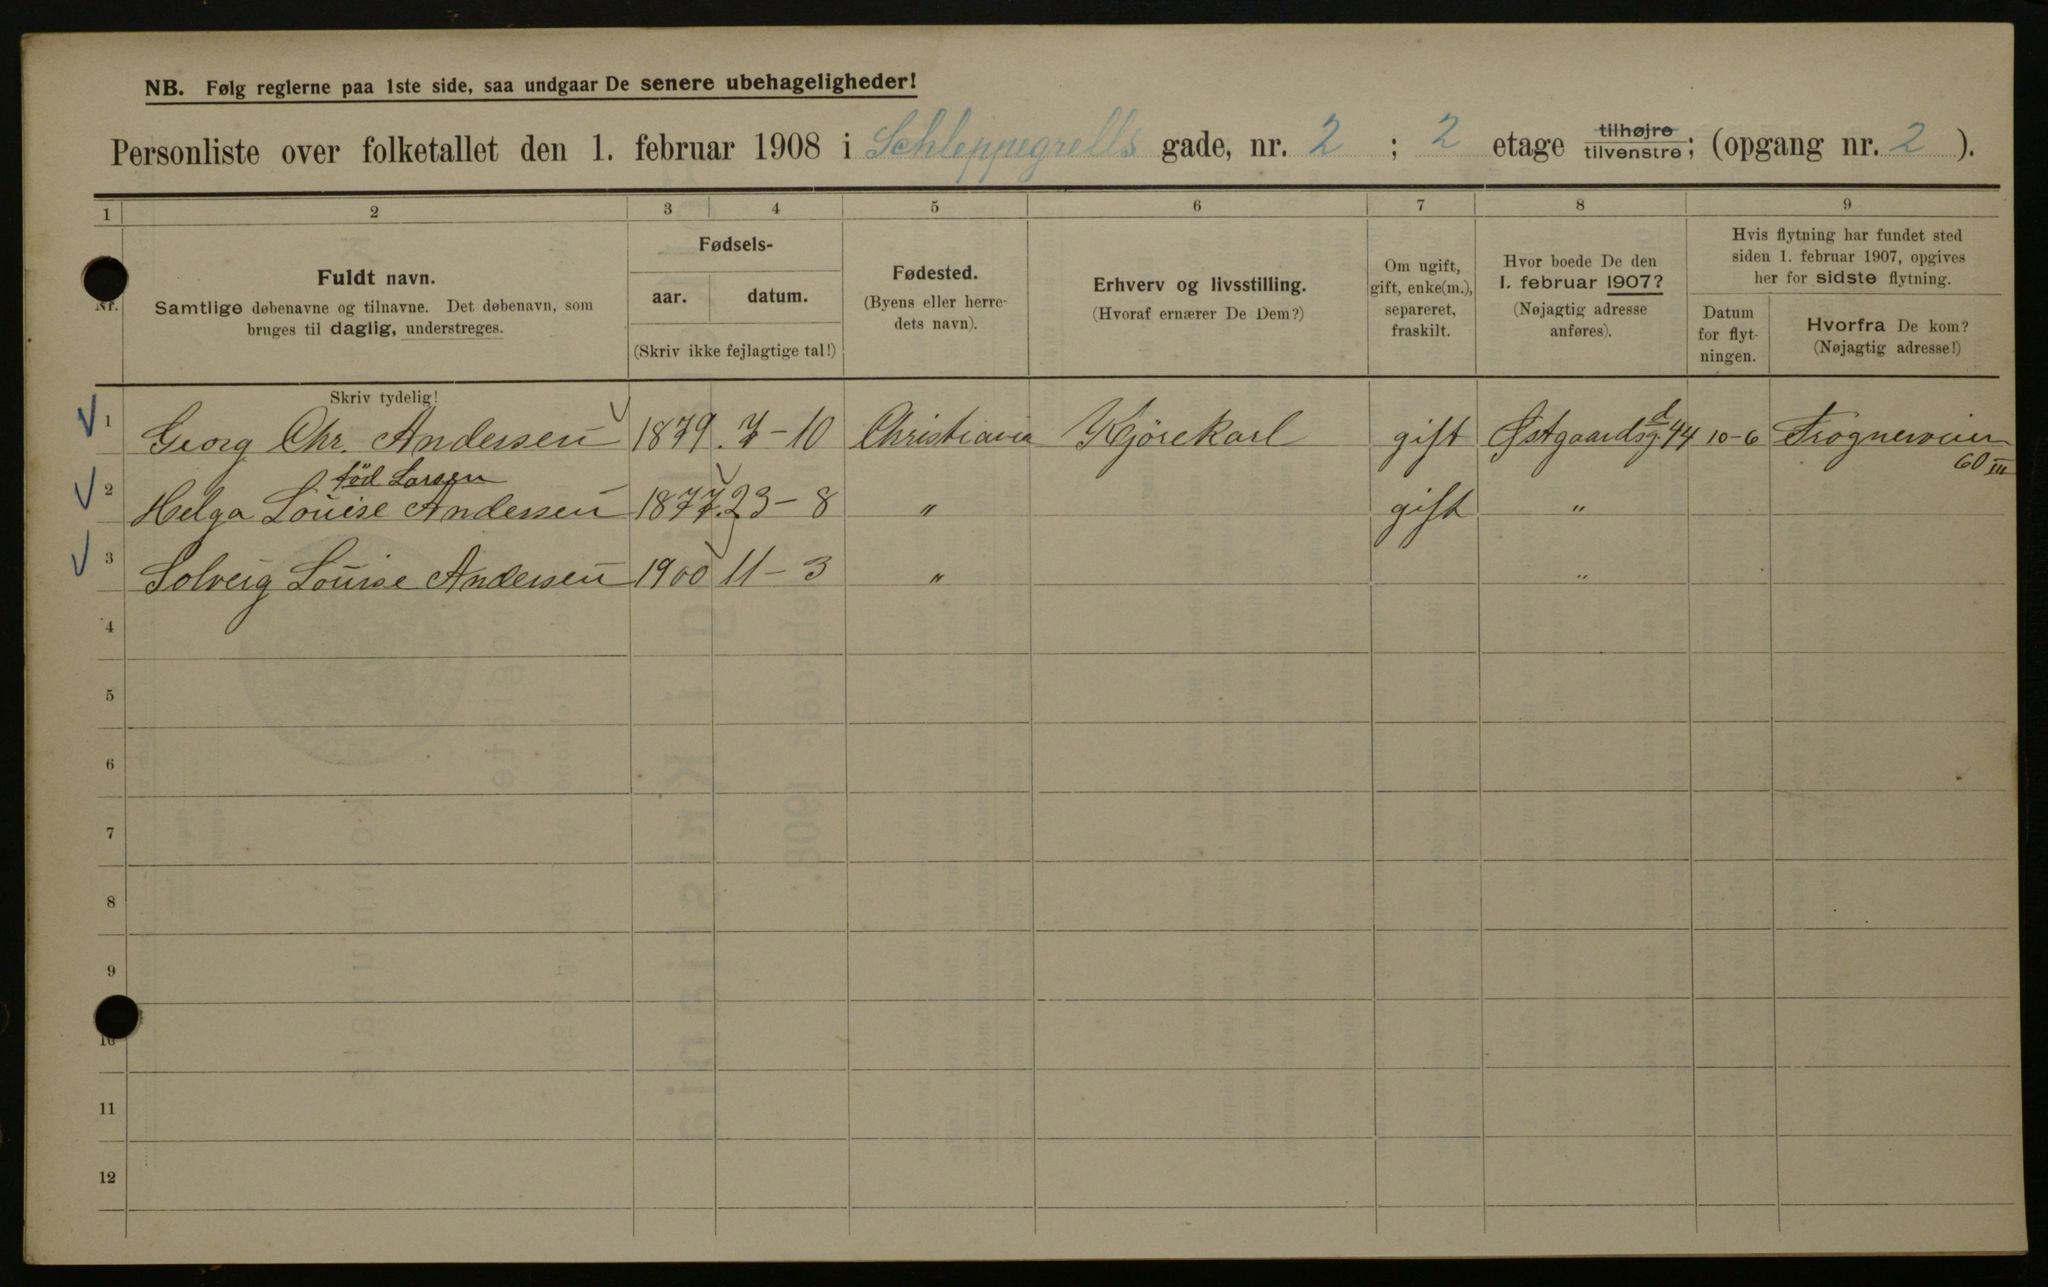 NB. Følg reglerne paa 1ste side, saa undgaar De senere ubehageligheder!
Personliste over folketallet den 1. februar 1908 i Schleppegrells gade, nr. 2 ; 2 etage tilhøjre tilvenstre; (opgang nr. 2 ).
1 2 3 4 5 6 7 8 9
Nr.
Fuldt navn.
Samtlige døbenavne og tilnavne. Det døbenavn, som
bruges til daglig, understreges.
Fødsels-
aar. datum.
(Skriv ikke fejlagtige tal!)
Fødested.
(Byens eller herre-
dets navn).
Erhverv og livsstilling.
(Hvoraf ernærer De Dem?)
Om ugift,
gift, enke(m.),
separeret,
fraskilt.
Hvor boede De den
1. februar 1907?
(Nøjagtig adresse
anføres).
Hvis flytning har fundet sted
siden 1. februar 1907, opgives
her for sidste flytning.
Datum
for flyt-
ningen.
Hvorfra De kom?
(Nøjagtig adresse!)
Skriv tydelig!
1 Georg Chr. Andersen 1879. 7-10 Christiania Kjörekarl gift Østgaardsg. d 44 10-6 Frognerveien
60 III
född Larsen
2 Helga Louise Andersen 1877. 23-8 " gift "
3 Solveig Louise Andersen 1900 11-3 " "
4
5
6
7
8
9
10
11
12